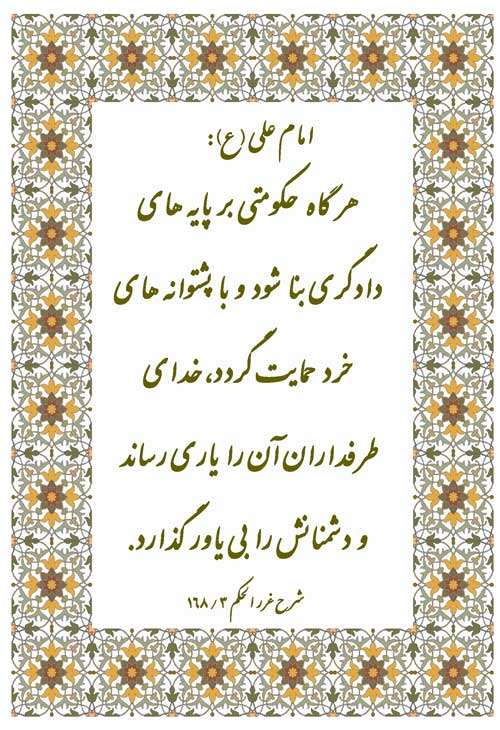 امام علی (ع):
هرگاه حکومتی بر پایه های
دادگری بنا شود و با پشتوانه های
خرد حمایت گردد، خدای
طرفداران آن را یاری رساند
و دشمنانش را بی یاور گذارد.
شرح غررالحکم ۳/۱۶۸